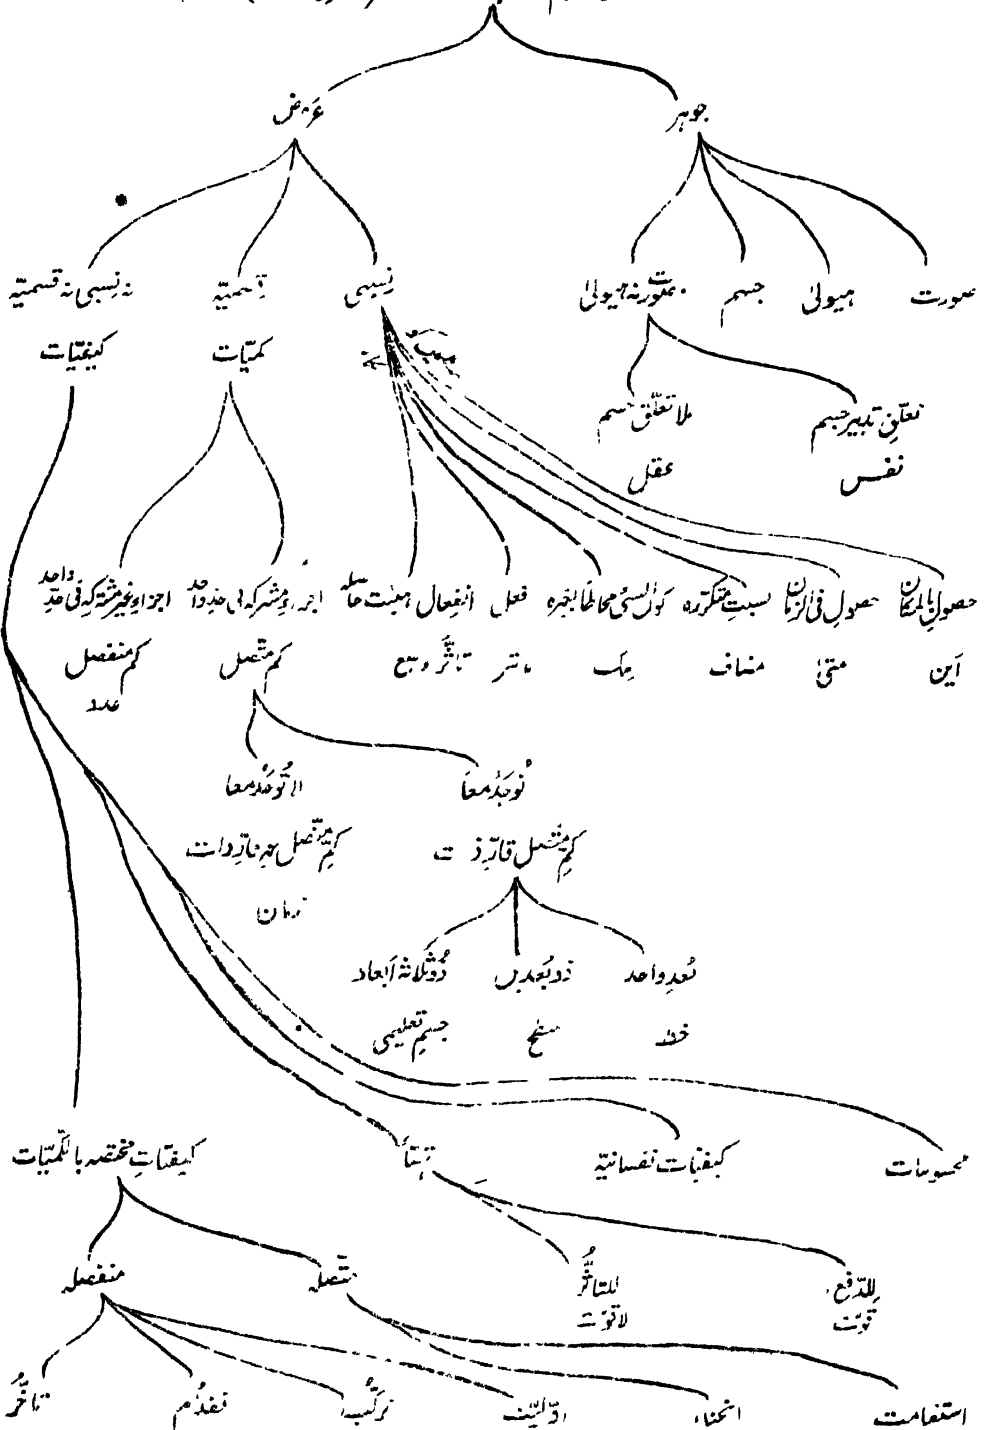 جوہر عرض
صورت ہیولیٰ جسم نہ صورت نہ ہیولیٰ نسبی قسمیہ نہ نسبی نہ قسمیہ
کمیّات کیفیّات
تعلّق تدبیر جسم بلا تعلّق جسم
نفس عقل
حصول فی المکان حصول فی الزمان نسبتِ متکررہ کون الشئ محاطاً بغیرہ فعل انفعال ہیئت حاصلہ اجزاء مشترکہ فی حدٍ واحد اجزاء غیر مشترکہ فی حدٍ واحد
أین متیٰ مضاف ملک تاثّر وضع کم متّصل کم منفصل
عدد
تُوجَدُ معاً لا تُوجَدُ معاً
کمِّ متّصل قارّ ذات کمِّ متّصل غیر قارّ ذات
زمان
بُعدِ واحد ذو بُعدین ذُو ثلاثۃ اَبعاد
خط سطح جسمِ تعلیمی
محسوسات کیفیّات نفسانیّہ تہیّأ کیفیّاتِ مختصہ بالکمّیّات
للدّفع للتاثُّر متّصلہ منفصلہ
قوّت لا قوّت
استقامت انحناء اوّلیّت ترکُّب تقدُّم تاخُّر